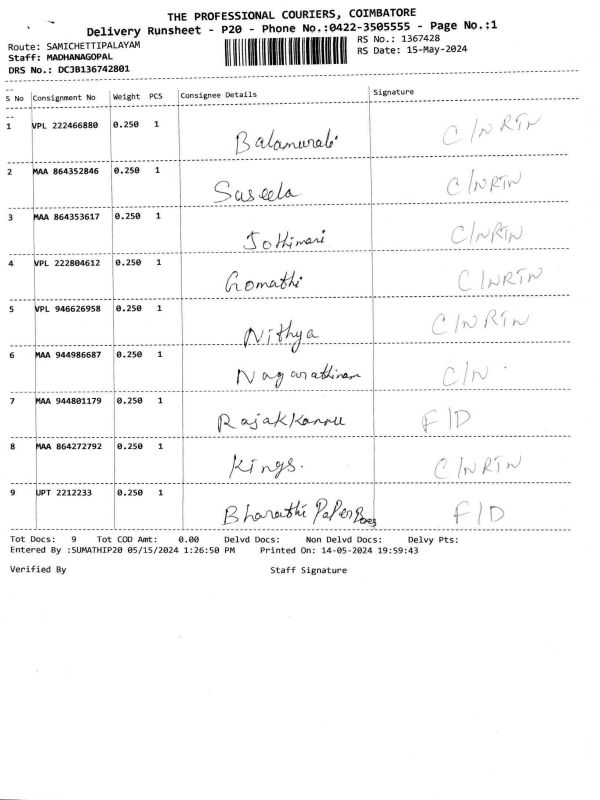 THE PROFESSIONAL COURIERS, COIMBATORE
Delivery Runsheet - P20 - Phone No.:0422-3505555 - Page No.:1
Route: SAMICHETTIPALAYAM RS No.: 1367428
Staff: MADHANAGOPAL RS Date: 15-May-2024
DRS No.: DCJB136742801
S No Consignment No Weight PCS Consignee Details Signature
1 VPL 222466880 0.250 1 Balamurali C/NRTN
2 MAA 864352846 0.250 1 Saseela C/NRTN
3 MAA 864353617 0.250 1 Jothimani C/NRTN
4 VPL 222804612 0.250 1 Gomathi C/NRTN
5 VPL 946626958 0.250 1 Nithya C/NRTN
6 MAA 944986687 0.250 1 Nagarathinam C/N
7 MAA 944801179 0.250 1 Rajakkannu F/D
8 MAA 864272792 0.250 1 Kings. C/NRTN
9 UPT 2212233 0.250 1 Bharathi Paper F/D
Tot Docs: 9 Tot COD Amt: 0.00 Delvd Docs: Non Delvd Docs: Delvy Pts:
Entered By :SUMATHIP20 05/15/2024 1:26:50 PM Printed On: 14-05-2024 19:59:43
Verified By Staff Signature